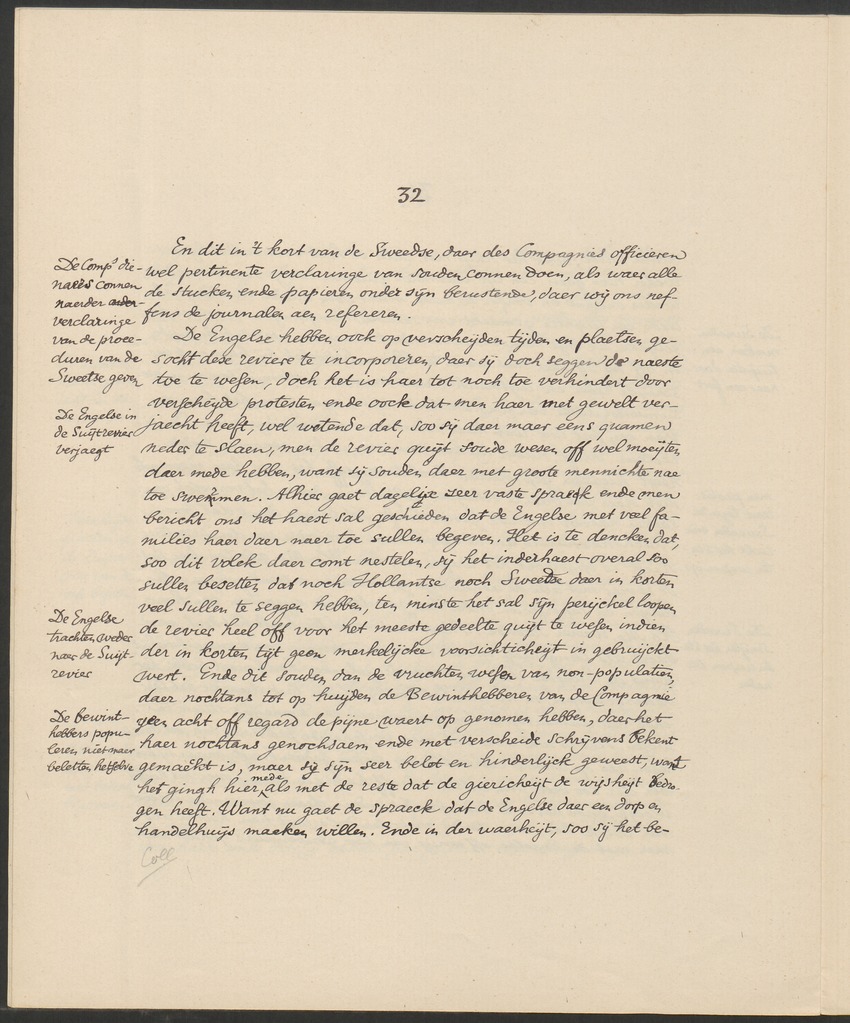 32
En dit in 't kort van de Sweedse, daer des Compagnies officieren
wel pertinente verclaringe van souden connen doen, als waer alle
de stucken ende papieren onder sijn berustende, daer wij ons nef-
fens de journalen aen refereren.
De Comps die-
naers connen
naerder onder-
verclaringe
van de proce-
duren van de
Sweetse geven
De Engelse hebben oock op verscheijden tijden en plaetsen ge-
socht dese reviere te incorporeren, daer sij doch seggen de naeste
toe te wesen, doch het is haer tot noch toe verhindert door
verscheijde protesten ende oock dat men haer met gewelt ver-
jaecht heeft, wel wetende dat, soo sij daer maer eens quamen
neder te slaen, men de revier quijt soude wesen off wel moeijten
daer mede hebben, want sij souden daer met groote mennichte nae
toe swemmen. Alhier gaet dagelijx seer vaste spraeck ende men
bericht ons het haest sal geschieden dat de Engelse met veel fa-
milies haer daer naer toe sullen begeven. Het is te dencken dat,
soo dit volck daer comt nestelen, sij het inderhaest overal soo
sullen besetten dat noch Hollantse noch Sweetse daer in korten
veel sullen te seggen hebben, ten minste het sal sijn perijckel loopen
de revier heel off voor het meeste gedeelte quijt te wesen indien
der in korten tijt geen merkelijcke voorsichticheijt in gebruijckt
wert. Ende dit souden dan de vruchten wesen van non-populatien,
daer nochtans tot op huijden de Bewinthebberen van de Compagnie
geen acht off regard de pijne waert op genomen hebben, daer het
haer nochtans genochsaem ende met verscheide schrijvens bekent
gemaeckt is, maer sij sijn seer belet en hinderlijck geweest, want
het gingh hier mede als met de reste dat de giericheijt de wijsheijt bedro-
gen heeft. Want nu gaet de spraeck dat de Engelse daer een dorp en
handelhuijs maeken willen. Ende in der waerheijt, soo sij het be-
De Engelse in
de Suijtrevier
verjaegt
De Engelse
trachten weder
naer de Suijt-
revier
De bewint-
hebbers popu-
leren niet maer
beletten hetselve
Coll